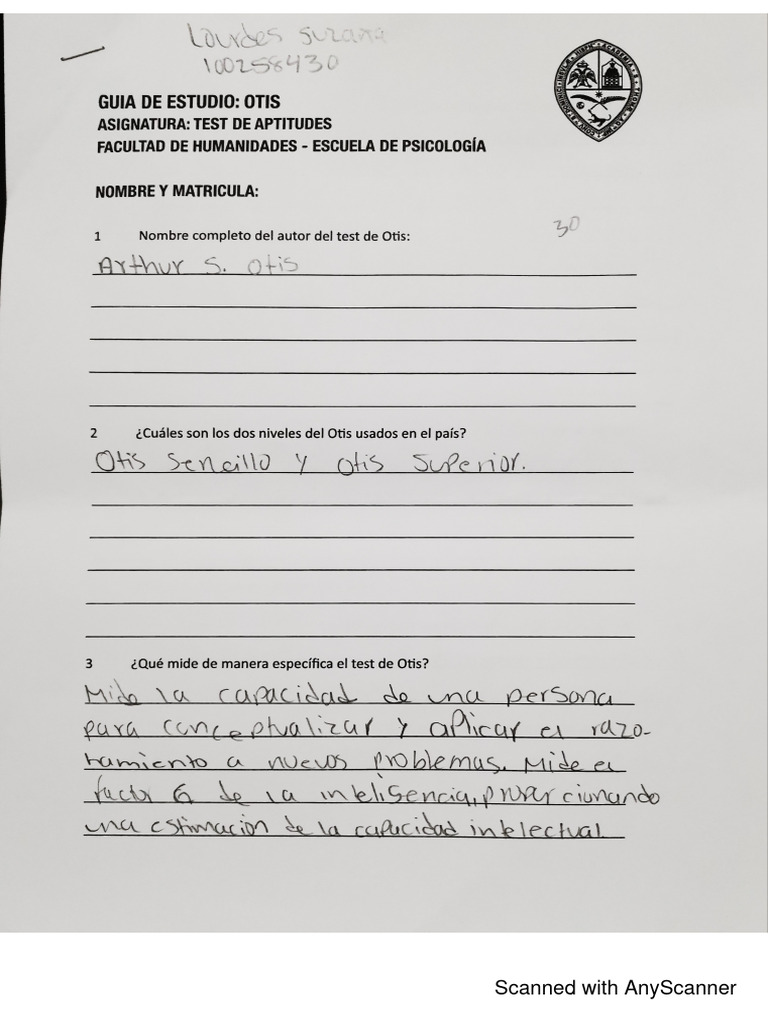 Lourdes Suzana
100258430
GUIA DE ESTUDIO: OTIS
ASIGNATURA: TEST DE APTITUDES
FACULTAD DE HUMANIDADES - ESCUELA DE PSICOLOGÍA
NOMBRE Y MATRICULA:
30
1 Nombre completo del autor del test de Otis:
Arthur S. Otis
2 ¿Cuáles son los dos niveles del Otis usados en el país?
Otis Sencillo y Otis Superior.
3 ¿Qué mide de manera específica el test de Otis?
Mide la capacidad de una persona
para conceptualizar y aplicar el razo-
namiento a nuevos problemas. Mide el
factor G de la inteligencia,
una estimación de la capacidad intelectual
Scanned with AnyScanner